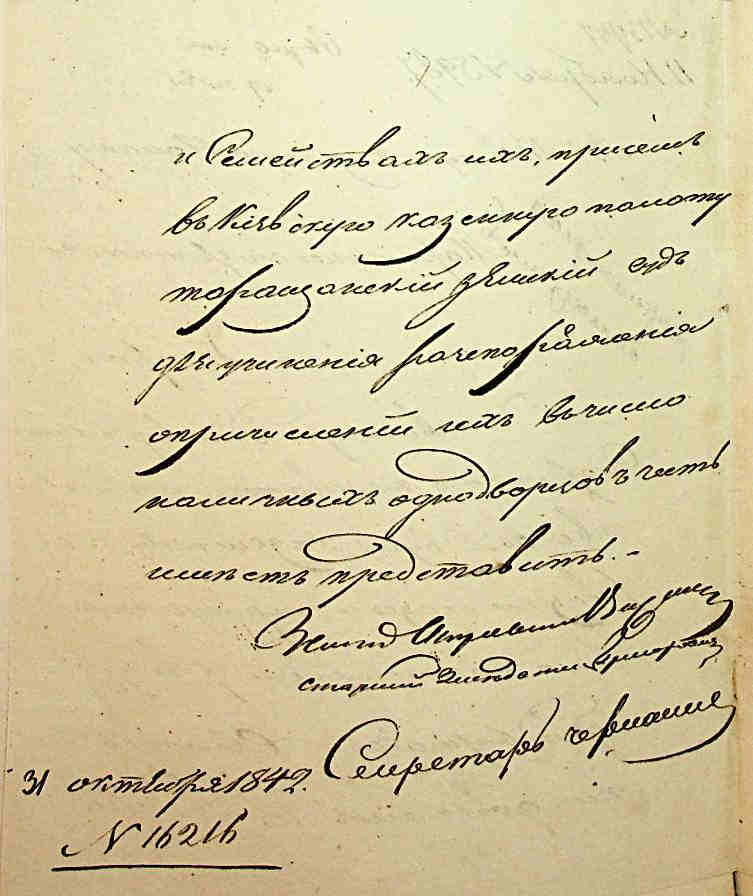 и Семействахъ ихъ, присемъ
въ Кіевскую казенную палату
таращанскій земскій судъ
для учиненія распоряженія
опричисленіи ихъ въ число
наличныхъ однодворцовъ честь
имѣетъ представить.-
Земск Исправник
старшій
Секретарь
31 октября 1842.
N 16216